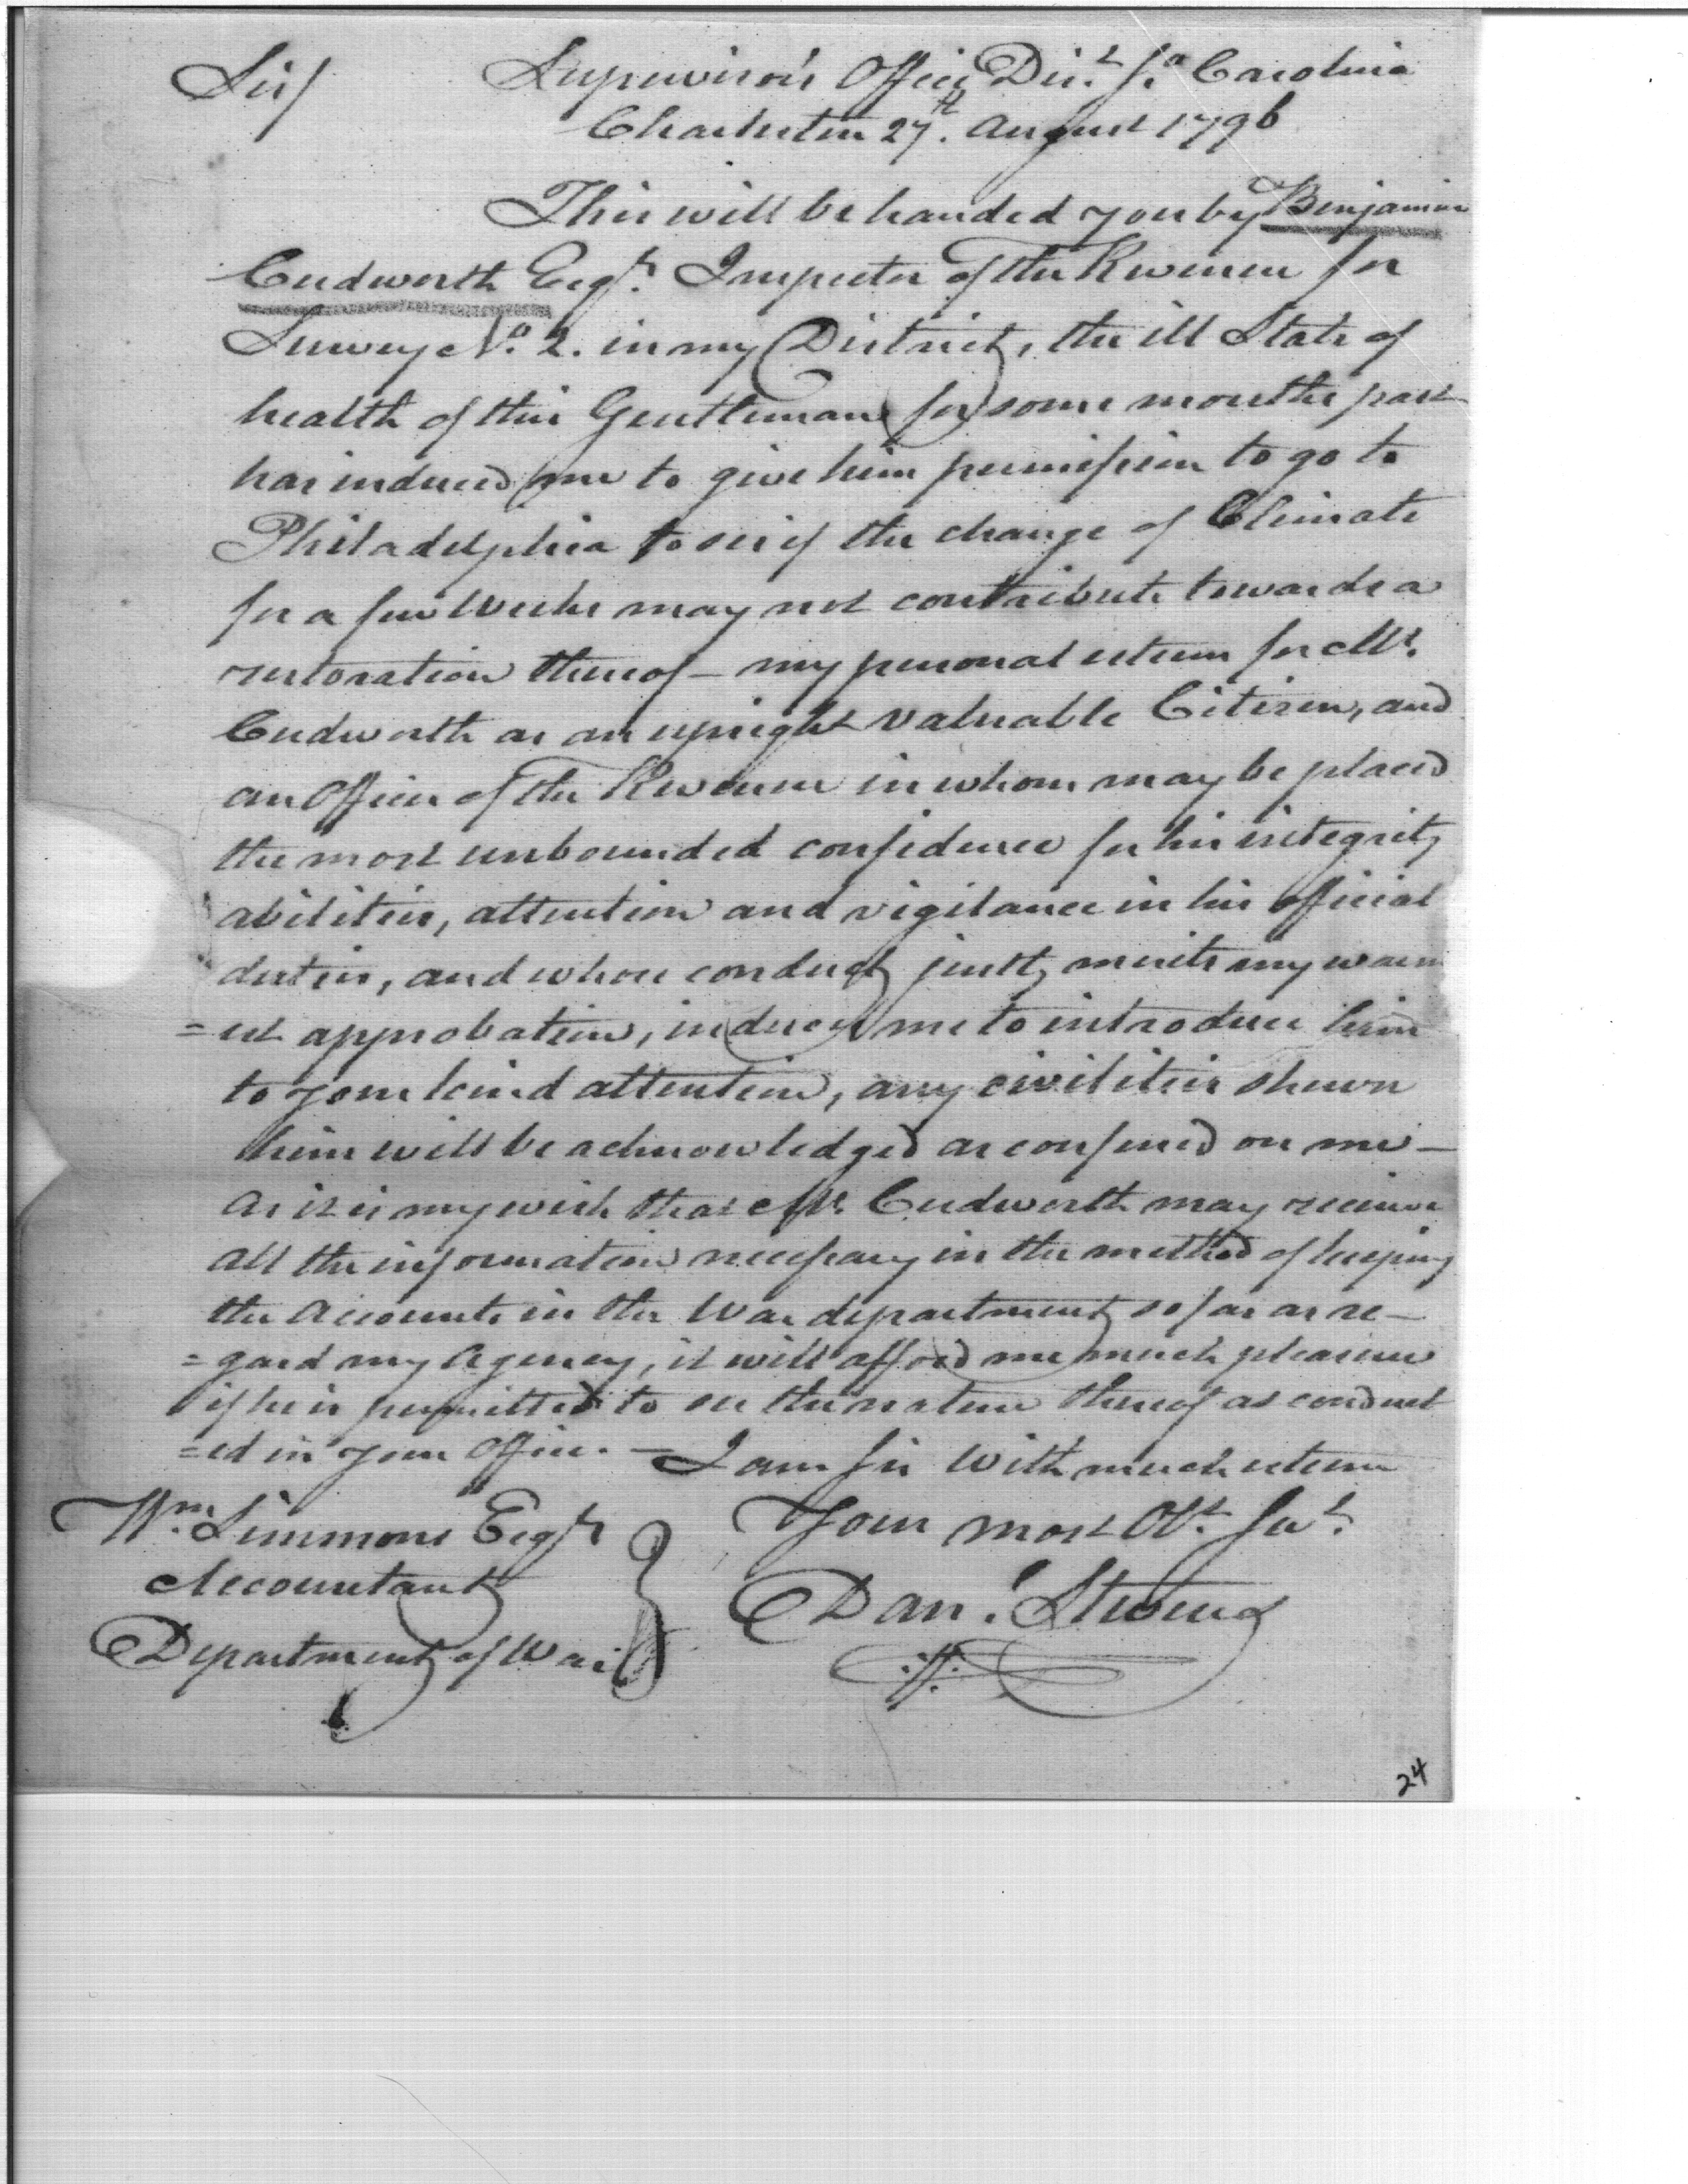 Sir/ Supervisor's Office Dist. So. Carolina
Charleston 27th. August 1796
This will be handed you by Benjamin
Cudworth Esqr. Inspector of the Revenue for
Survey No. 2. in my District, the ill State of
health of this Gentleman for some months past
has induced me to give him permission to go to
Philadelphia to see if the change of Climate
for a few Weeks may not contribute towards a
restoration thereof — my personal esteem for Mr.
Cudworth as an upright valuable Citizen, and
an Officer of the Revenue in whom may be placed
the most unbounded confidence for his integrity
abilities, attention and vigilance in his official
duties, and whose conduct justly merits my warm
=est approbation, induces me to introduce him
to your kind attention, any civilities shewn
him will be acknowledged as confered on me —
As it is my wish that Mr. Cudworth may receive
all the information necessary in the method of keeping
the Accounts in the War department so far as re—
=gard my Agency, it will afford me much pleasure
if he is permitted to see the nature thereof as conduct
=ed in your Office. — I am Sir With much esteem
Wm. Simmons Esqr Your most Obt. Sert.
Accountant
Danl. Stevens
Department of War
24